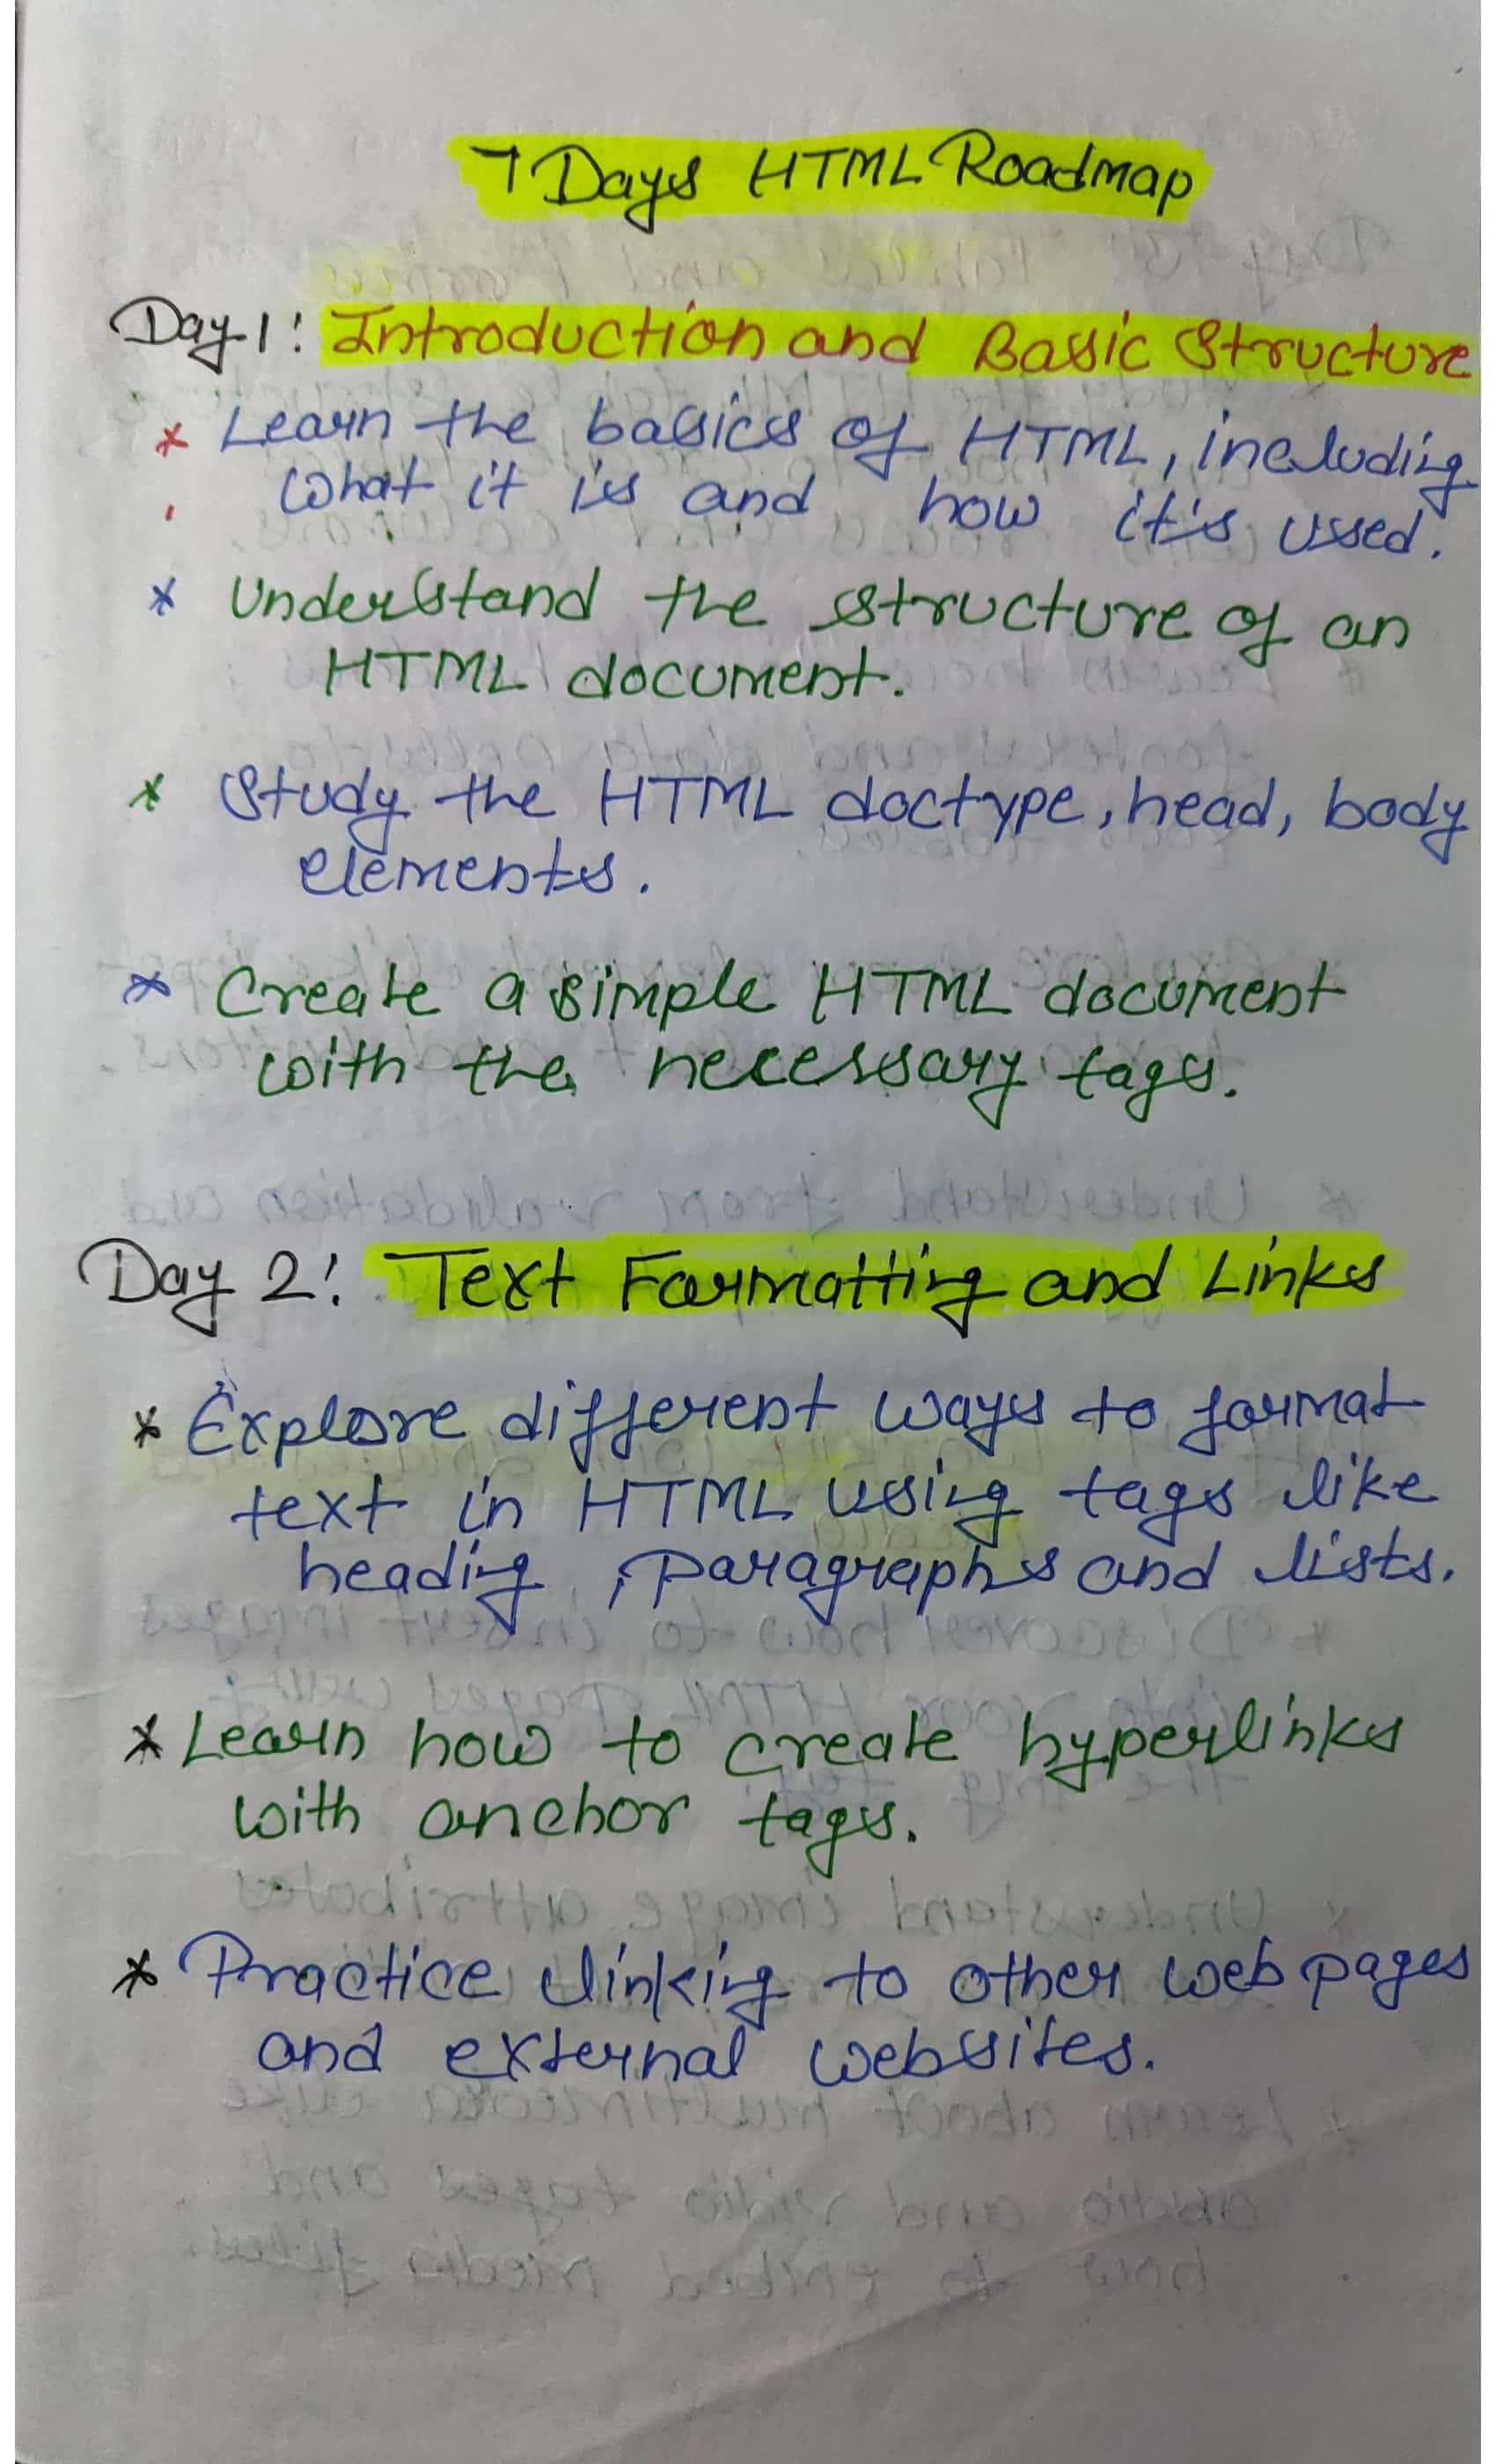 7 Days HTML Roadmap
Day 1: Introduction and Basic Structure
* Learn the basics of HTML, including
what it is and how it's used.
* Understand the structure of an
HTML document.
* Study the HTML doctype, head, body
elements.
* Create a simple HTML document
with the necessary tags.
Day 2: Text Formatting and Links
* Explore different ways to format
text in HTML using tags like
heading, paragraphs and lists.
* Learn how to create hyperlinks
with anchor tags.
* Practice linking to other web pages
and external websites.